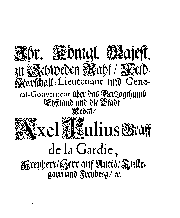 Ihr. Königl. Majest.
zu Schweden Raht/ Feld-
Marschall-Lieutenant und Gene-
ral-Gouverneur über das Hertzogthumb
Ehstland und die Stadt
Reval/
Axel Julius Graff
de la Gardie,
Freyherr/ Herr auf
und Freyberg/ ec.